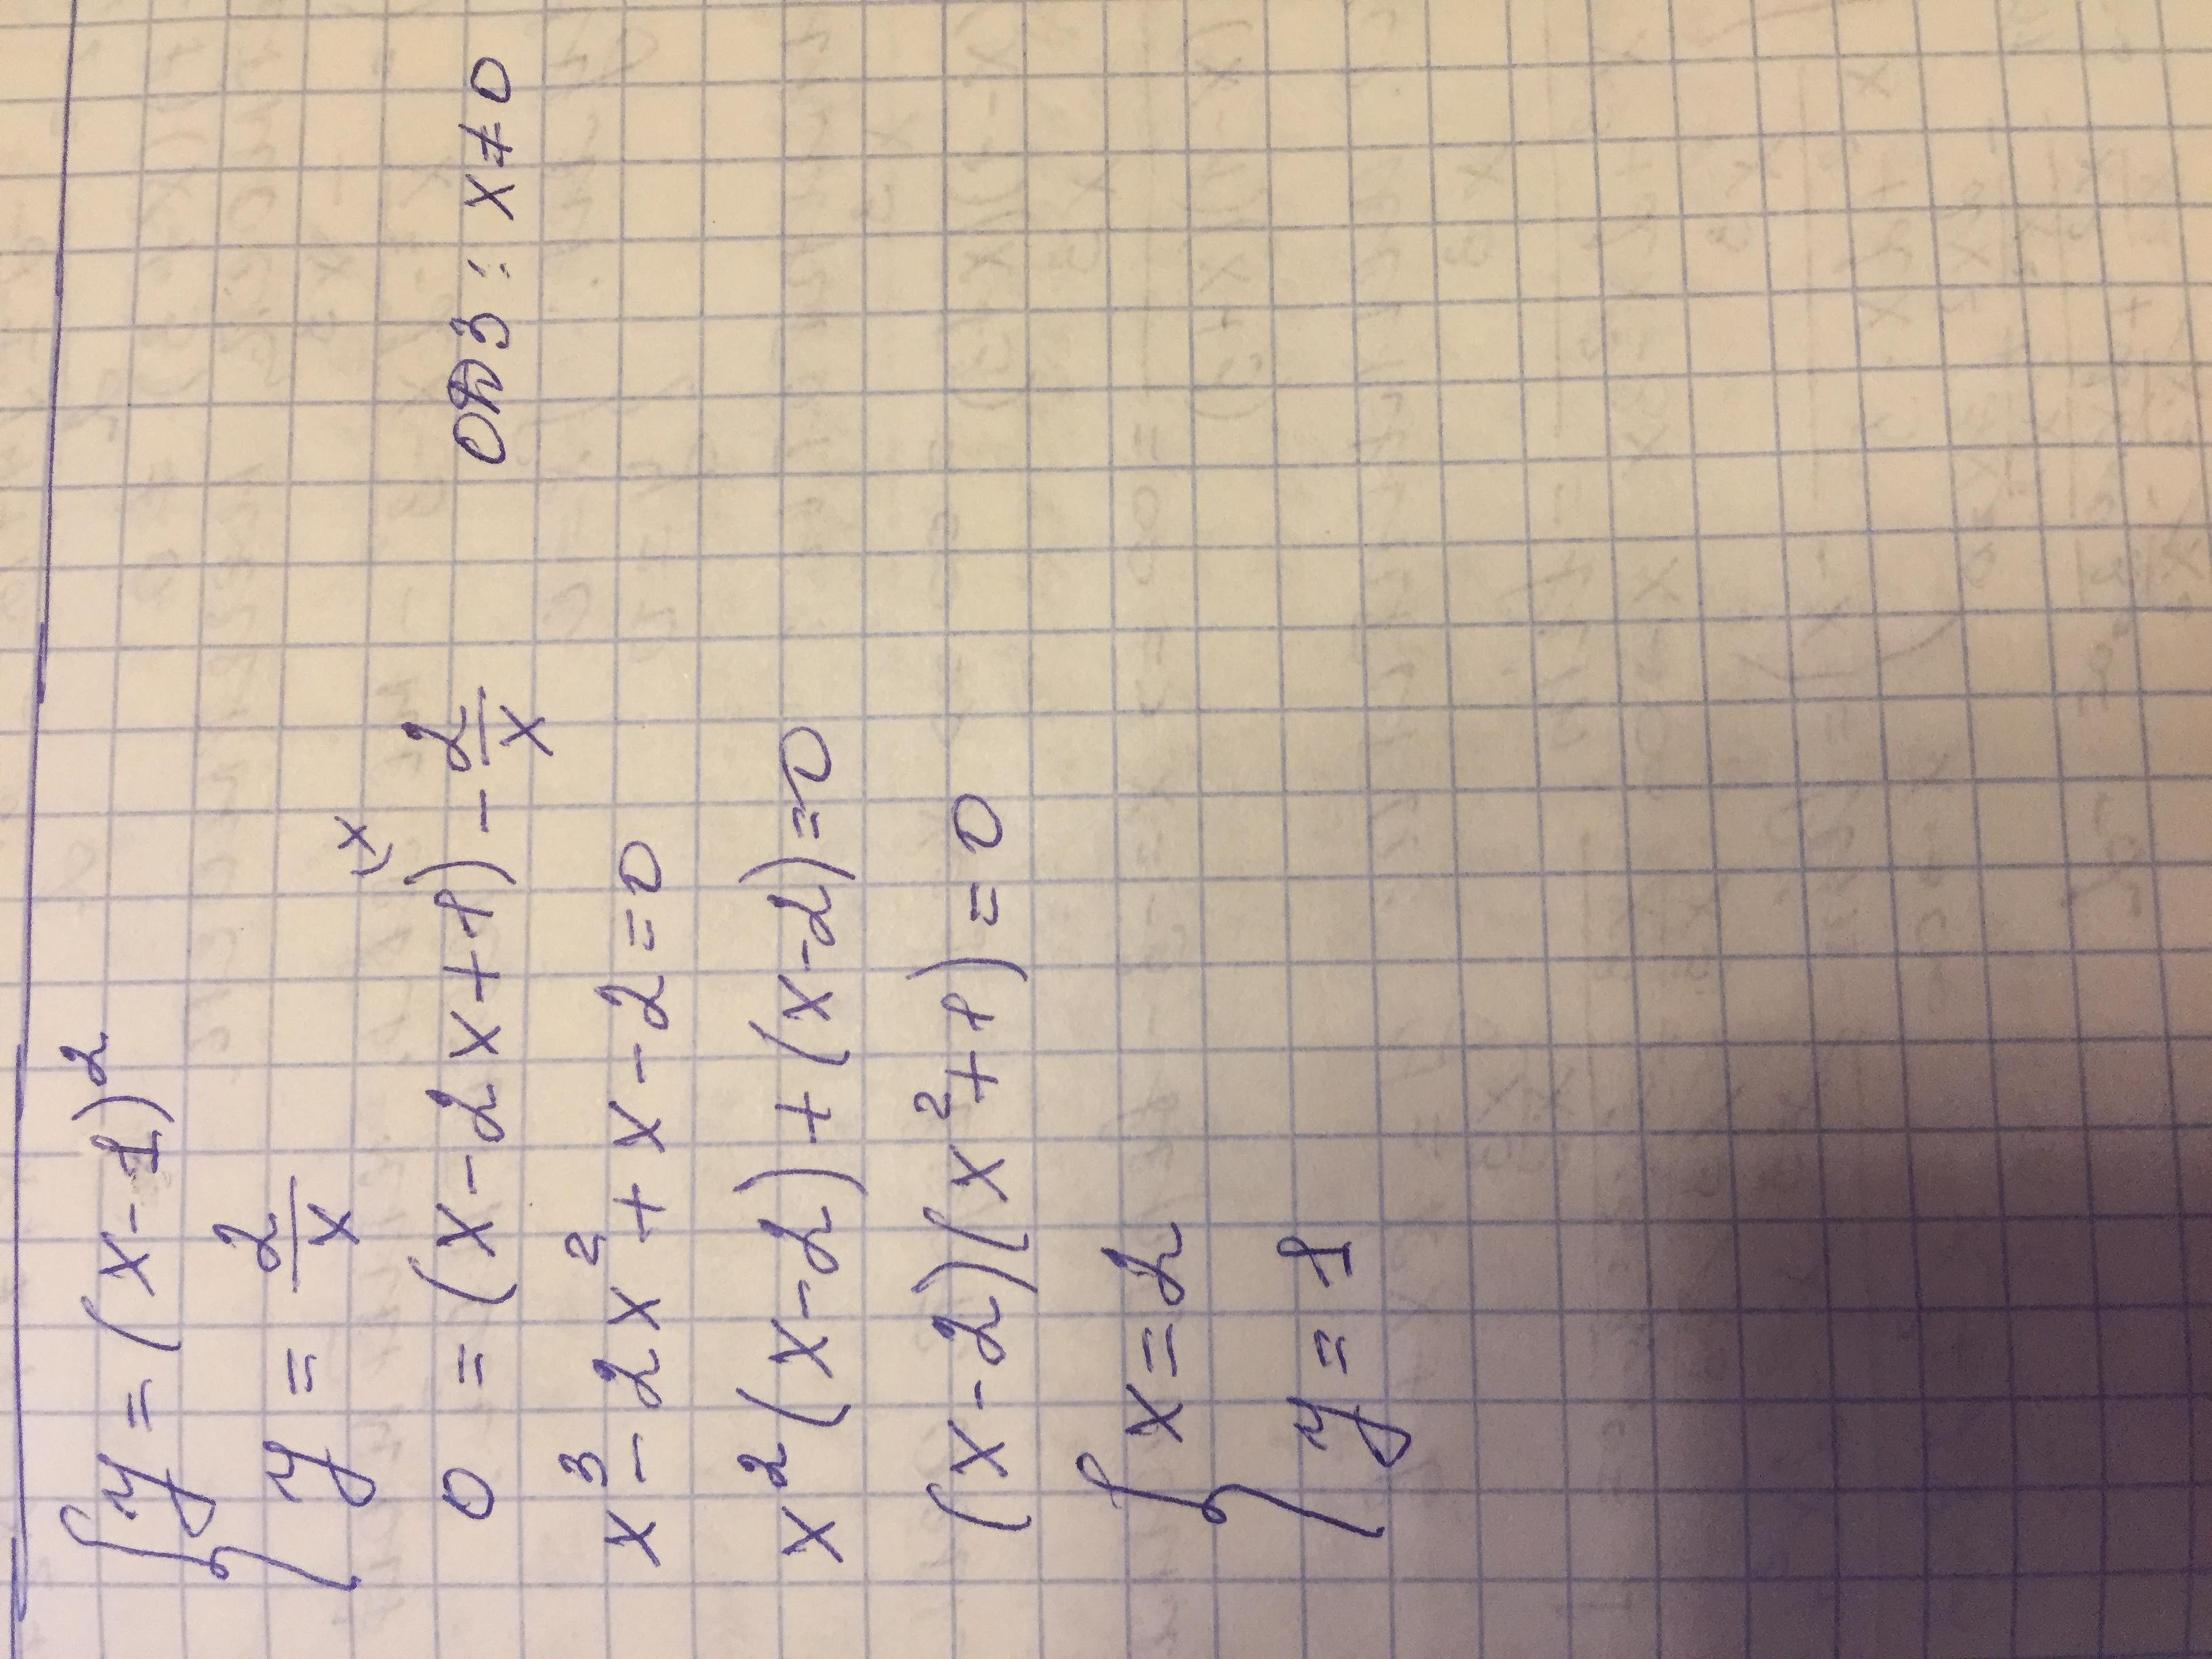 { y = (x-1)²
y = 2/x
0 = (x-2x+1)\x - 2/x ОДЗ: x≠0
x³-2x²+x-2=0
x²(x-2)+(x-2)=0
(x-2)(x²+1)=0
{ x=2
y=1